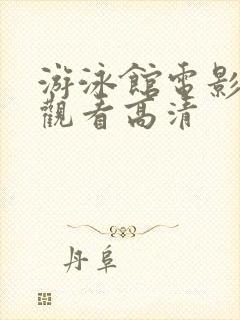 游泳館電影
觀看高清
丹阜